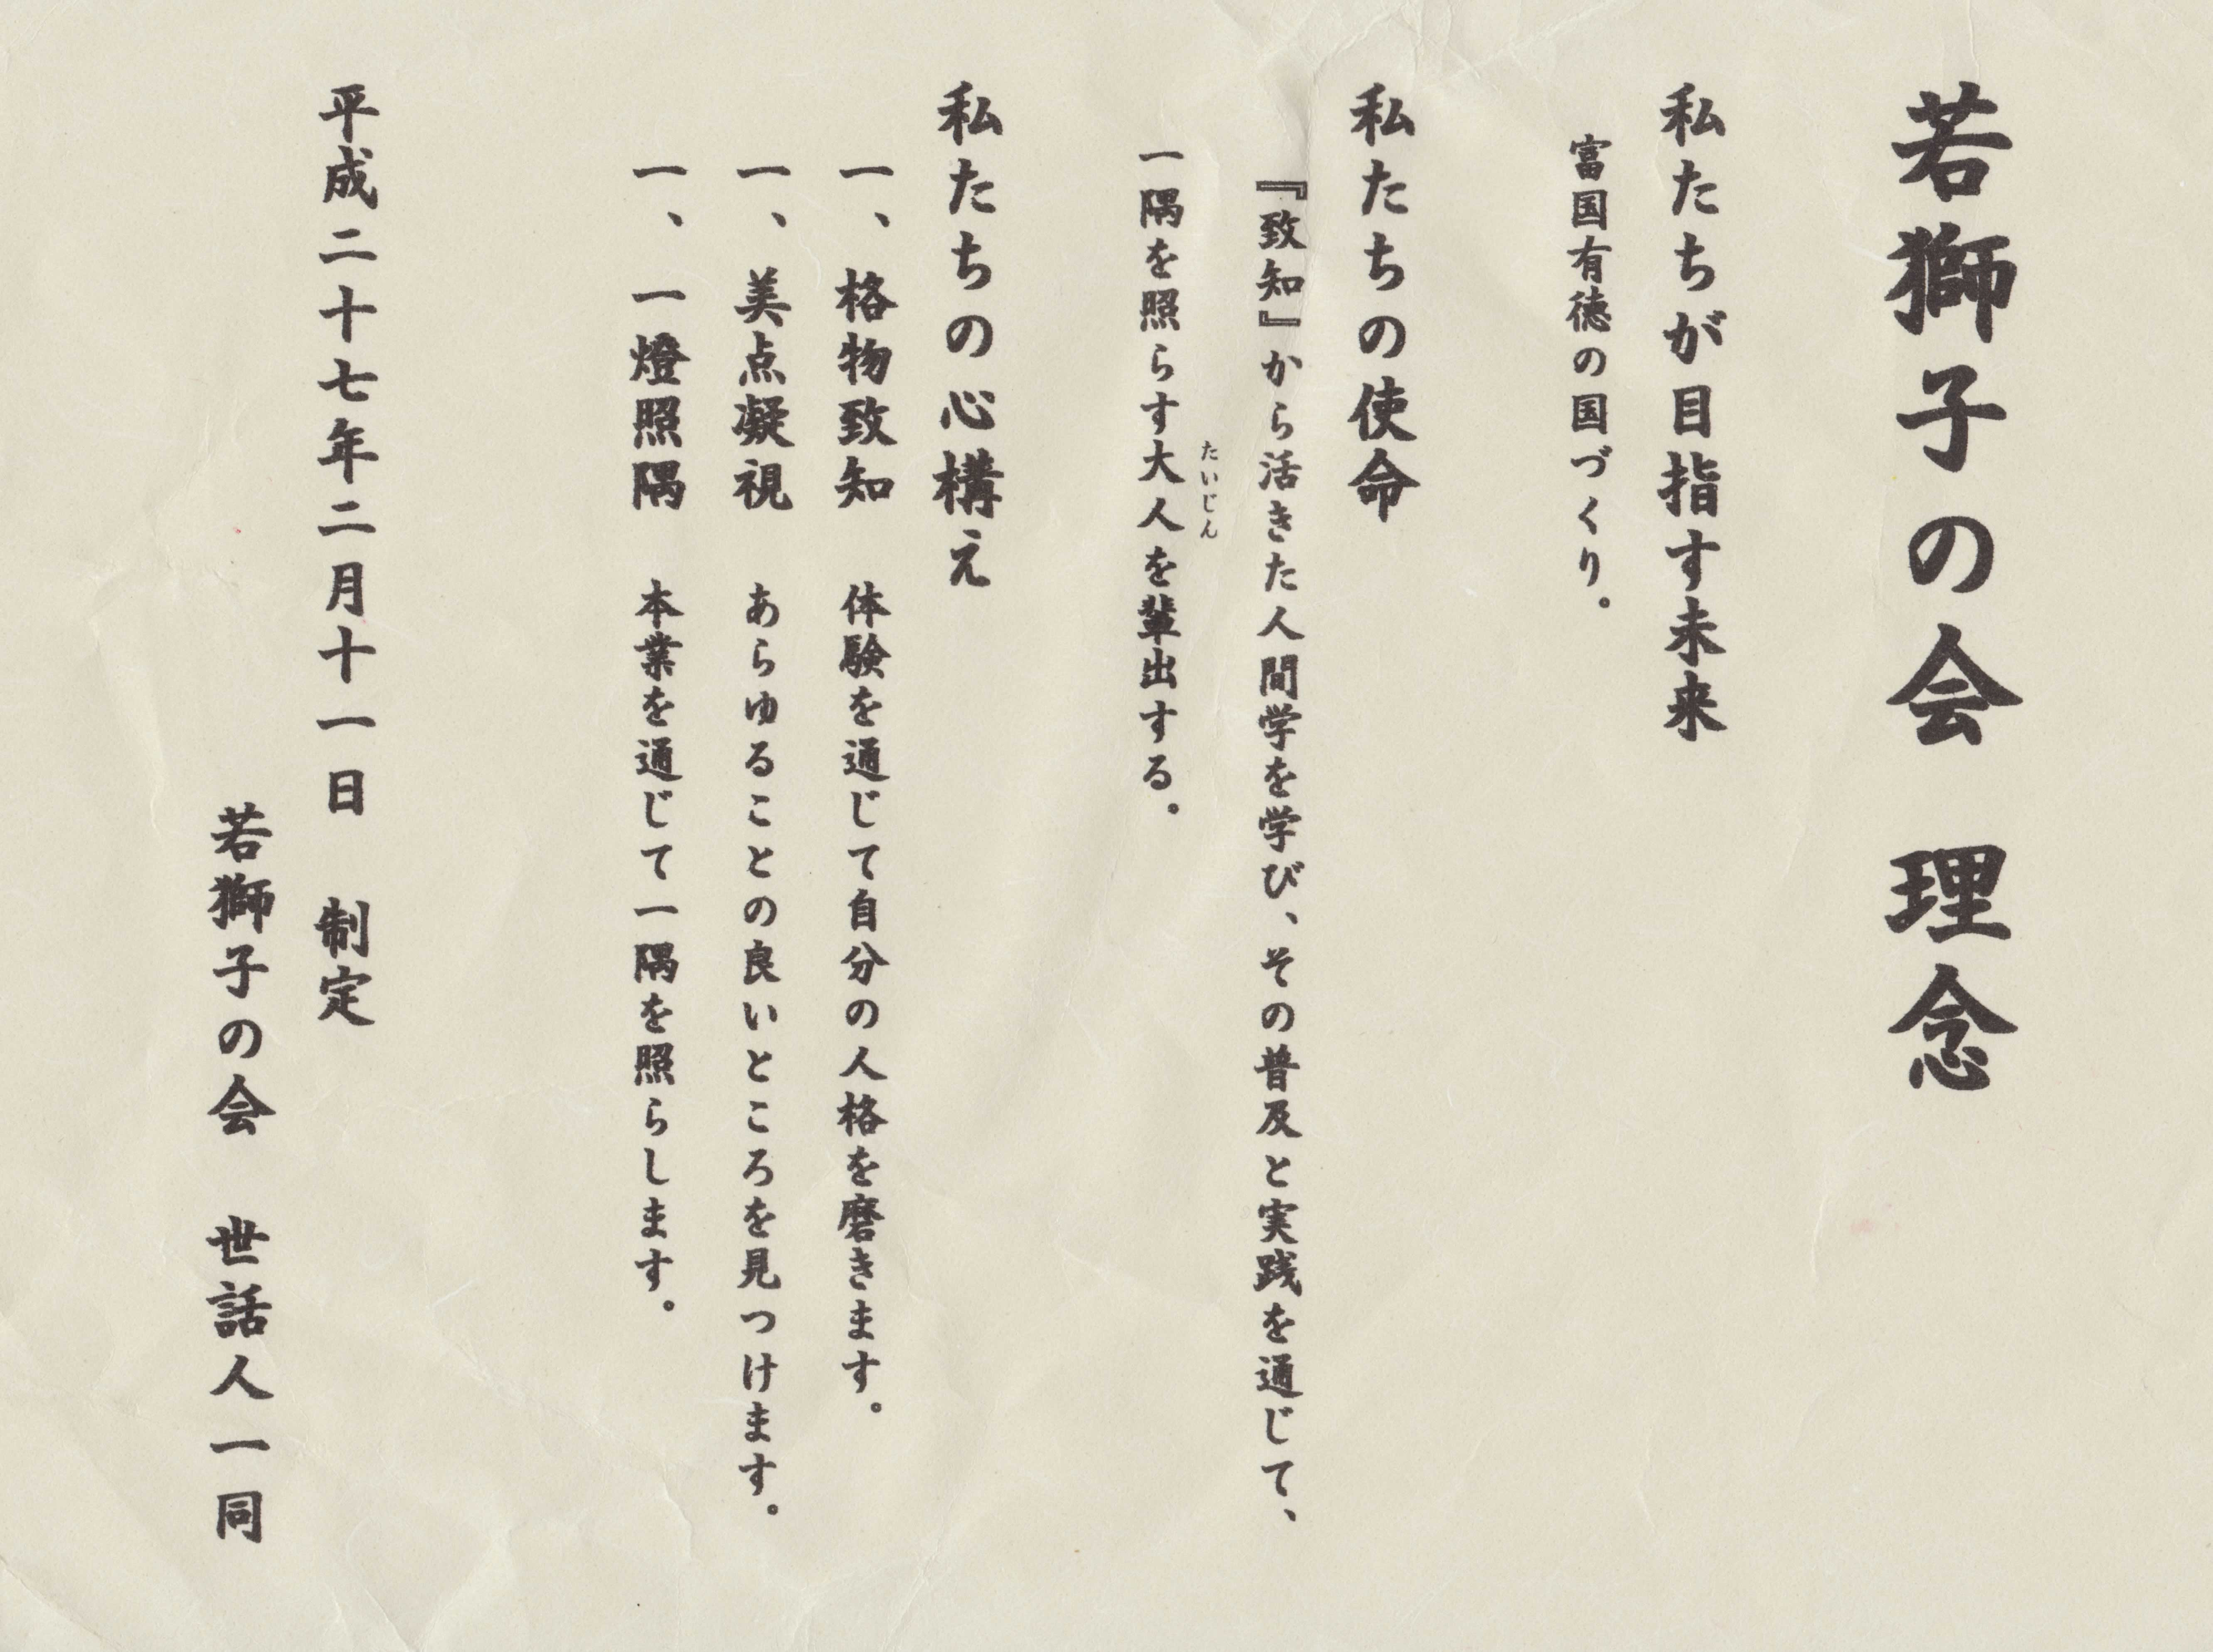 若獅子の会　理念
私たちが目指す未来
富国有徳の国づくり。
私たちの使命
『致知』から活きた人間学を学び、その普及と実践を通じて、
たいじん
一隅を照らす大人を輩出する。
私たちの心構え
一、格物致知　体験を通じて自分の人格を磨きます。
一、美点凝視　あらゆることの良いところを見つけます。
一、一燈照隅　本業を通じて一隅を照らします。
平成二十七年二月十一日　制定
若獅子の会　世話人一同